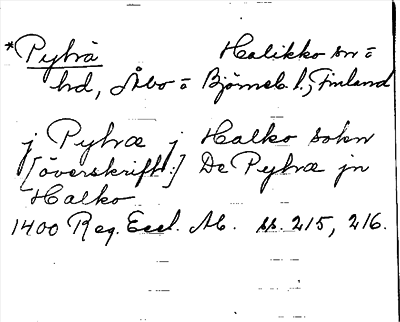 *Pyhrä Halikko sn =
hd, Åbo = Björneb. l., Finland
j Pyhræ j Halko sokn
[överskrift:] De Pyhræ jn
Halko
1400 Reg. Eccl. Ab. ss. 215, 216.